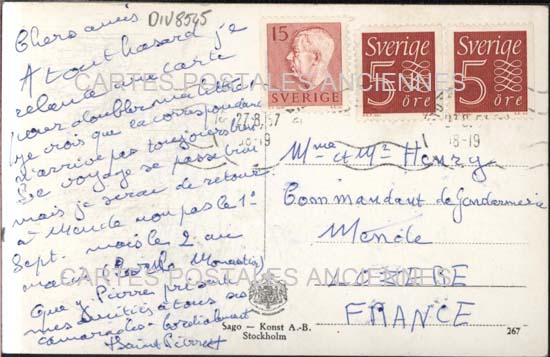 Chers amis
DIV8545
A tout hasard je
relance une carte
pour doubler ma lettre
je crois que la correspondance
n'arrive pas toujours bien
Le voyage se passe bien
mais je serai de retour
à Mende non pas le 1er
Sept. mais le 2 au
Que Pierre
mes amitiés à tous
camarades. Cordialement
15
SVERIGE
Sverige
5
öre
Sverige
5
öre
27.8.57
18-19
18-19
CARTES POSTALES ANCIENNES
Mme et Mr Henry
Commandant de Gendarmerie
Mende
LOZERE
FRANCE
CARTES POSTALES ANCIENNES
Sago — Konst A.-B.
Stockholm
267